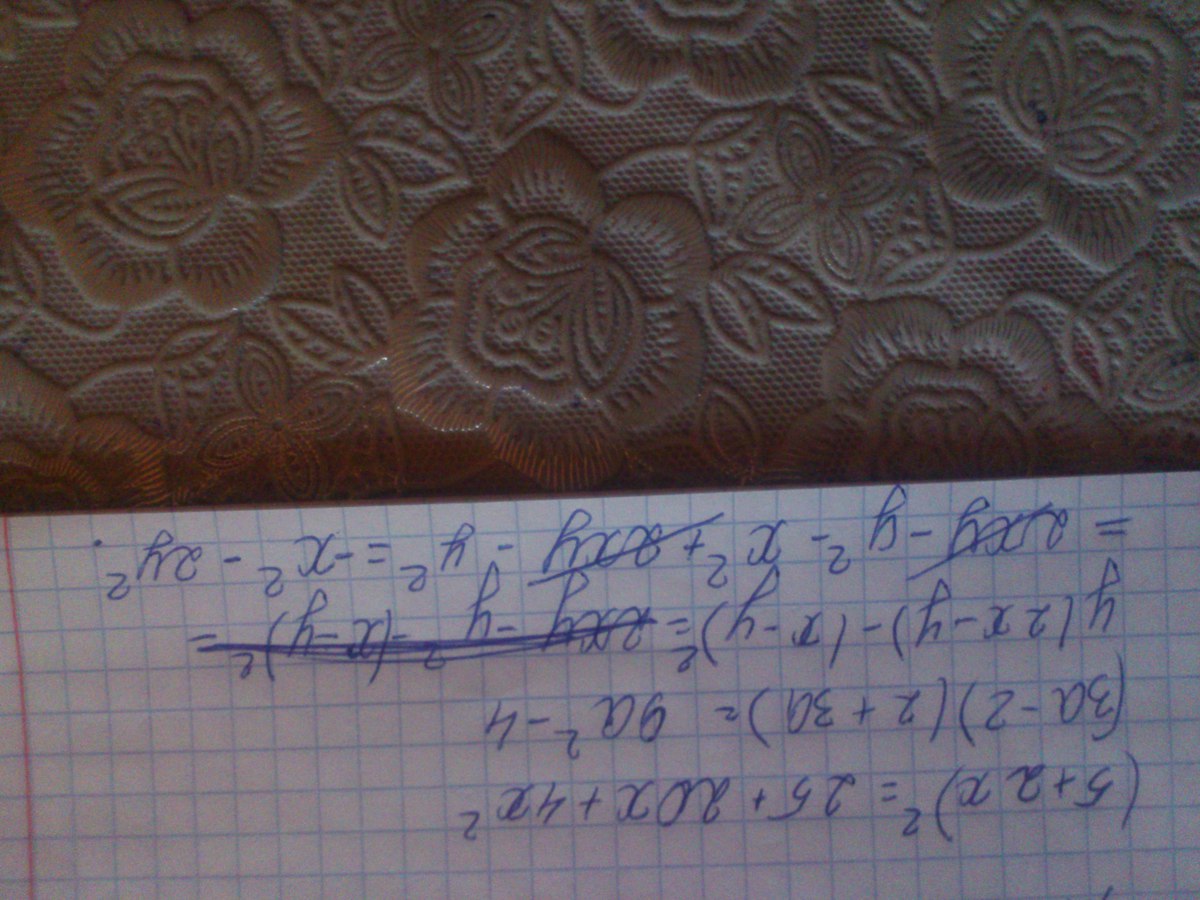 (5+2x)²= 25+20x+4x²
(3a-2)(2+3a)= 9a²-4
y(2x-y)-(x-y)²= 2xy-y²-(x-y)²=
= 2xy-y²-x²+2xy-y²=-x²-2y².